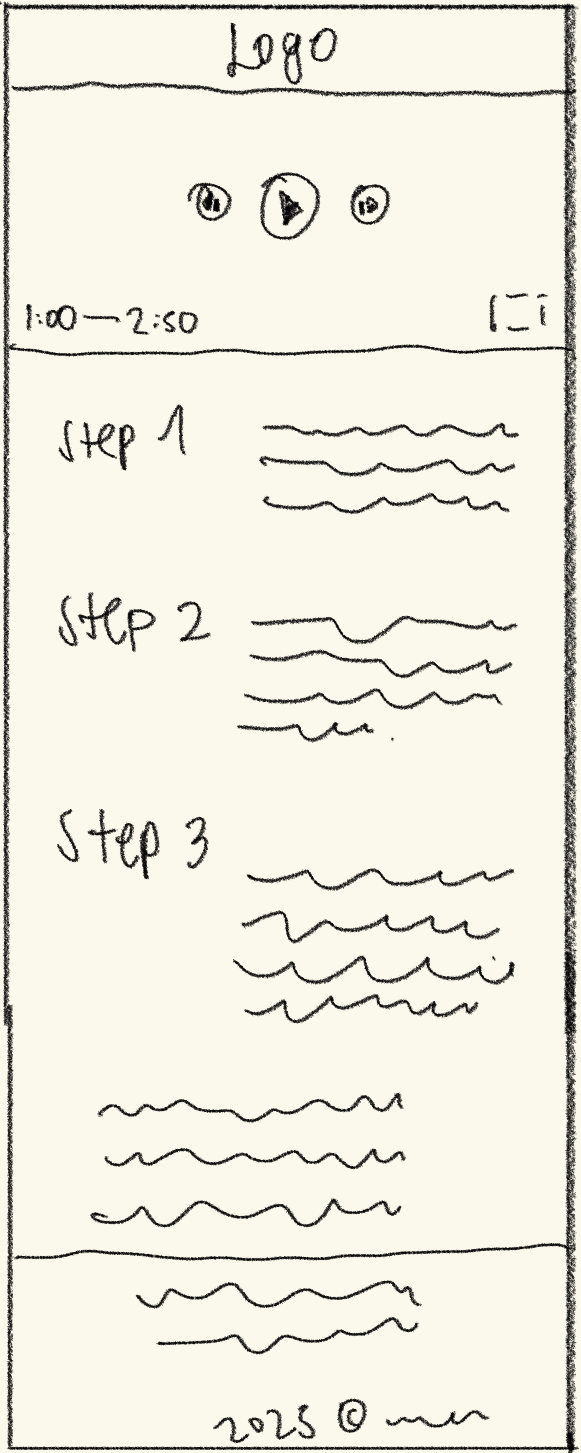 Logo
1:00 — 2:50
Step 1
Step 2
Step 3
2025 ©